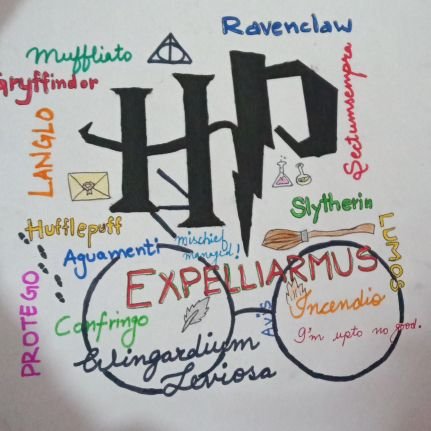 Ravenclaw
Muffliato
Gryffindor
HP
LANGLO
Sectumsempra
Slytherin
Hufflepuff
Aguamenti
mischief
managed!
LUMOS
EXPELLIARMUS
PROTEGO
Confringo
Avis
Incendio
I'm upto no good.
Wingardium
Leviosa